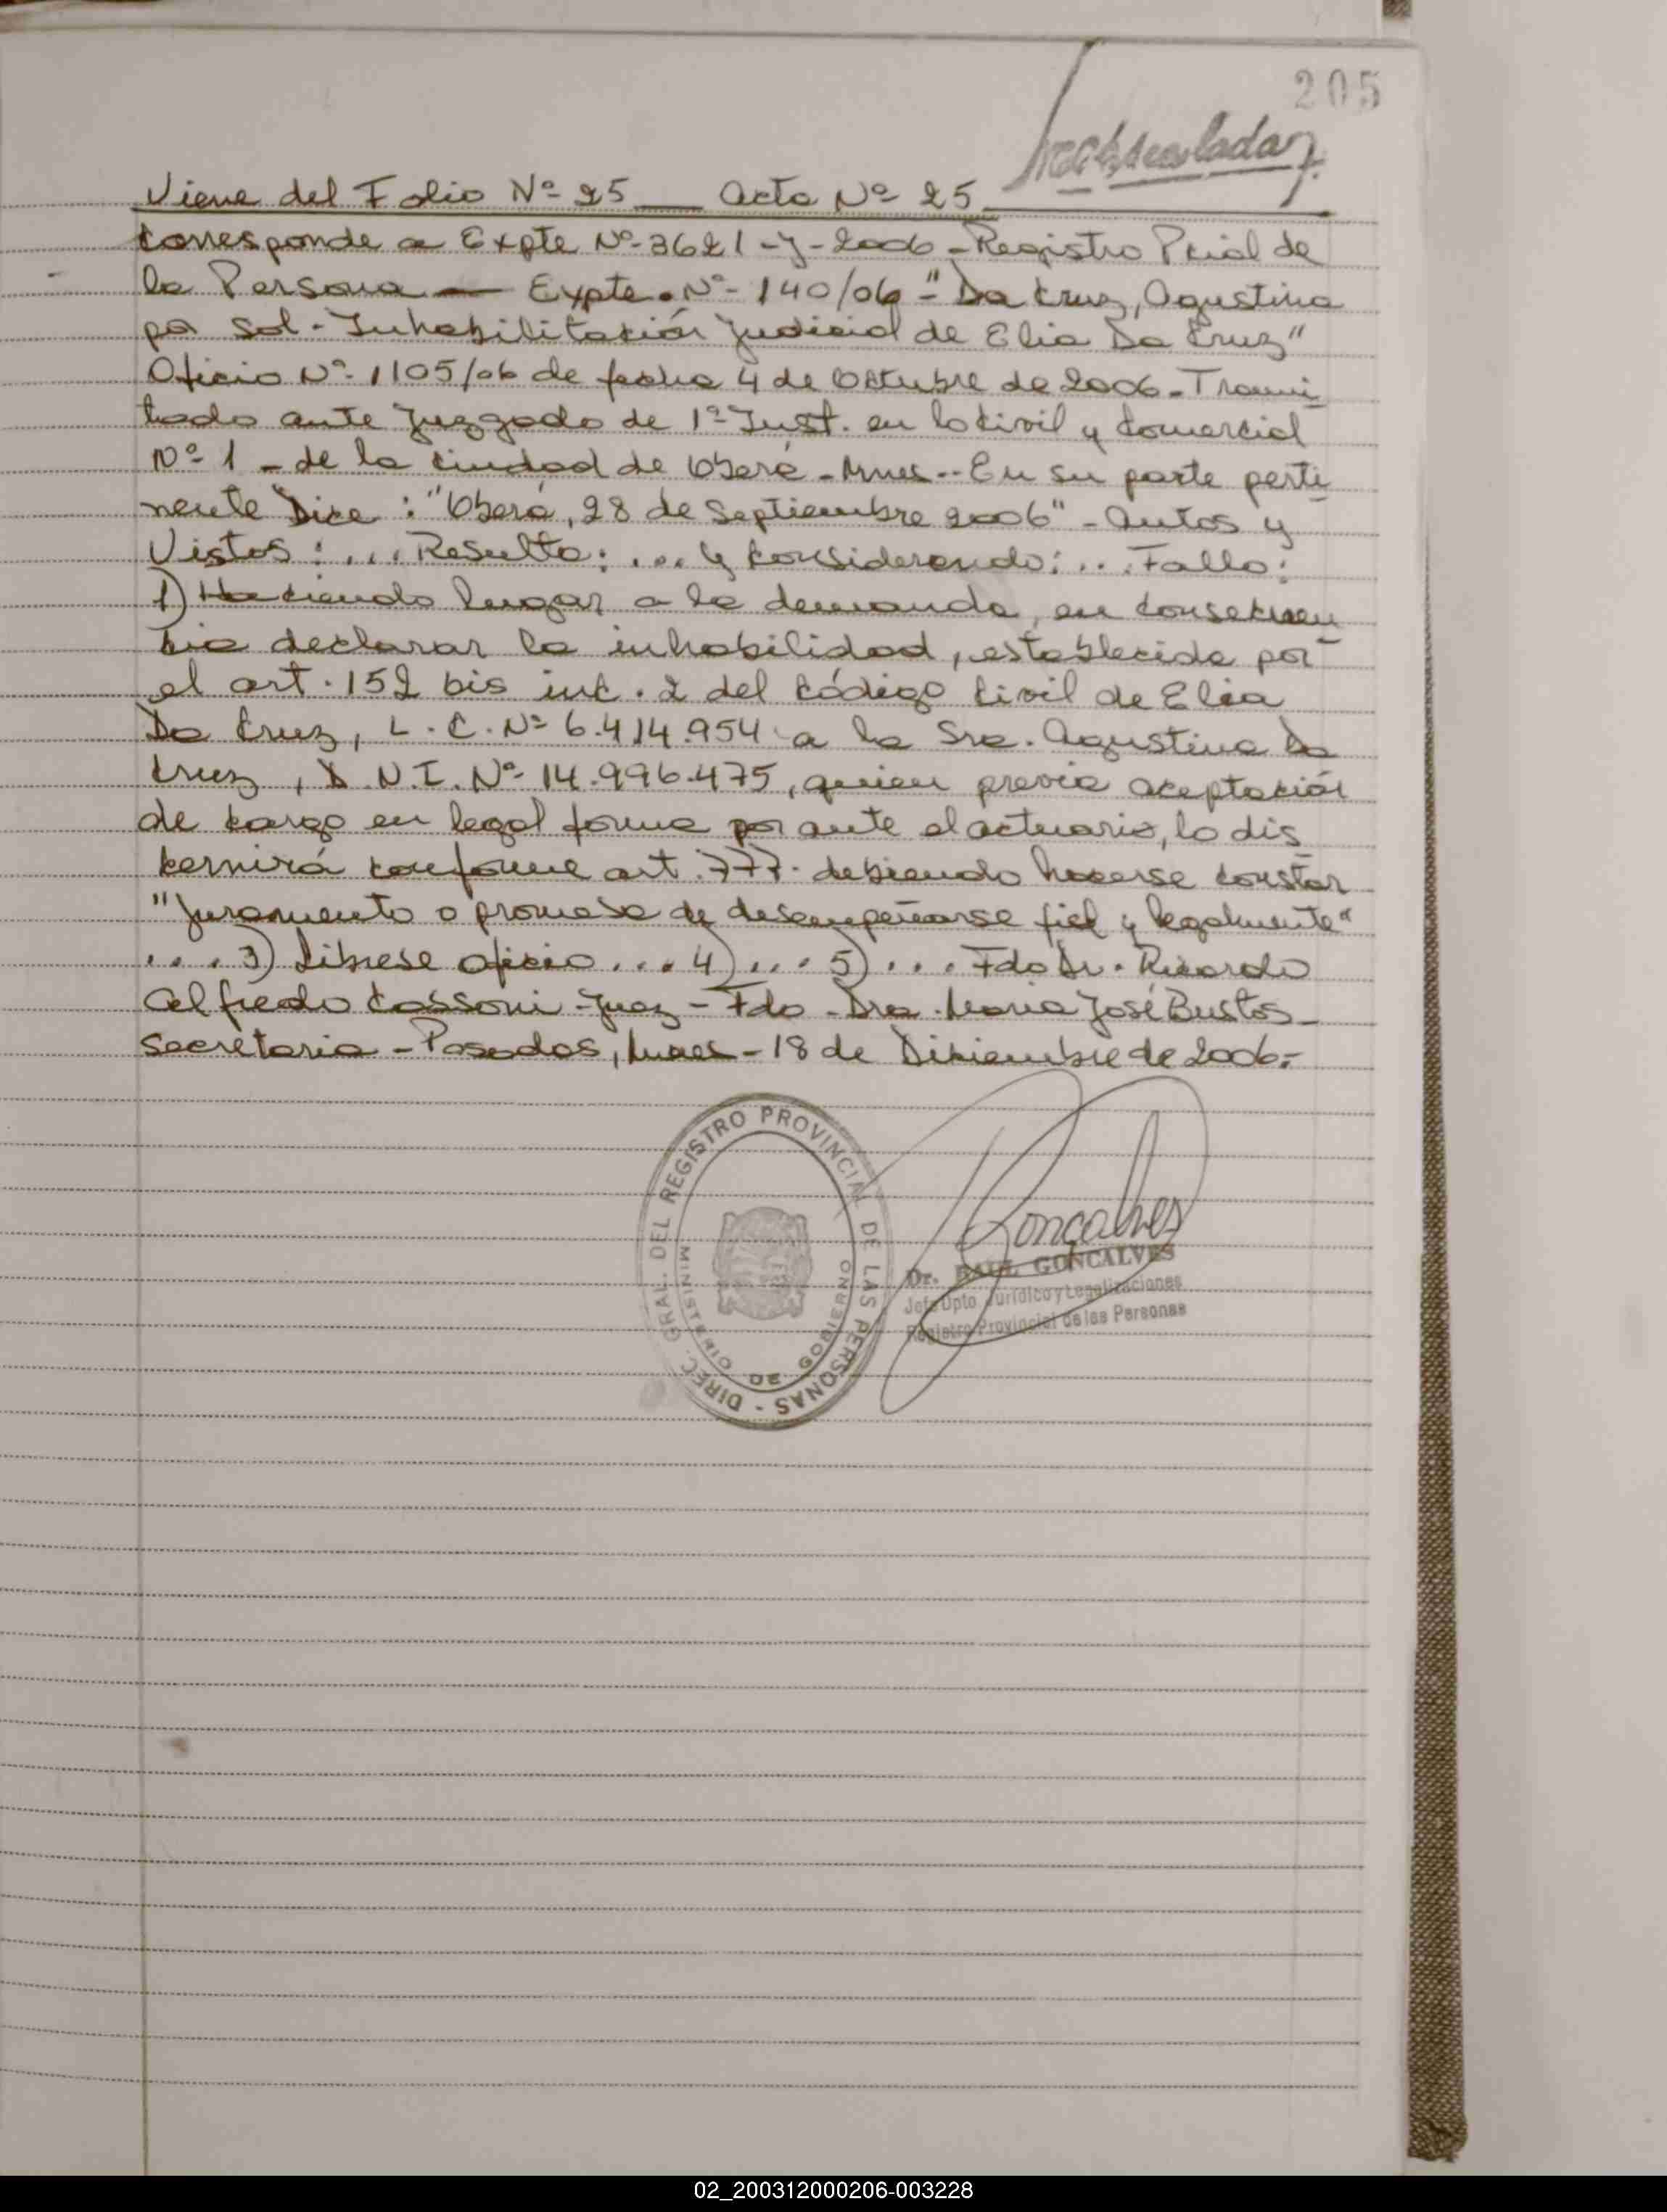 205
Viene del Folio Nº 25 — Acta Nº 25
Corresponde a Expte Nº 3621-J-2006 - Registro Pcial de
la Persona — Expte. Nº 140/06 - "Da Cruz, Agustina
por sol - Inhabilitación Judicial de Elia Da Cruz"
Oficio Nº 1105/06 de fecha 4 de Octubre de 2006 - Trami
tado ante Juzgado de 1ª Inst. en lo Civil y Comercial
Nº 1 - de la Ciudad de Oberá - Mnes -- En su parte perti
nente Dice : "Oberá, 28 de Septiembre 2006" - Autos y
Vistos : ... Resulta : ... y Considerando : ... Fallo :
1) Haciendo lugar a la demanda, en consecuen
cia declarar la inhabilidad, establecida por
el art. 152 bis inc. 2 del Código Civil de Elia
Da Cruz, L. C. Nº 6.414.954 a la Sra. Agustina Da
Cruz, D.N.I. Nº 14.996.475, quien previa aceptación
de cargo en legal forma por ante el actuario, lo dis
cernirá conforme art. 777. debiendo hacerse constar
"Juramento o promesa de desempeñarse fiel y legalmente"
.... 3) Líbrese oficio .... 4) ... 5) ... Fdo Dr. Ricardo
Alfredo Cassoni - Juez - Fdo - Dra. Maria José Bustos -
Secretaria - Posadas, Mnes - 18 de Diciembre de 2006.-
DIREC. GRAL. DEL REGISTRO PROVINCIAL DE LAS PERSONAS -
MINISTERIO DE GOBIERNO
Goncalves
Dr. RAUL GONCALVES
Jefe Dpto Jurídico y Legalizaciones
Registro Provincial de las Personas
02_200312000206-003228